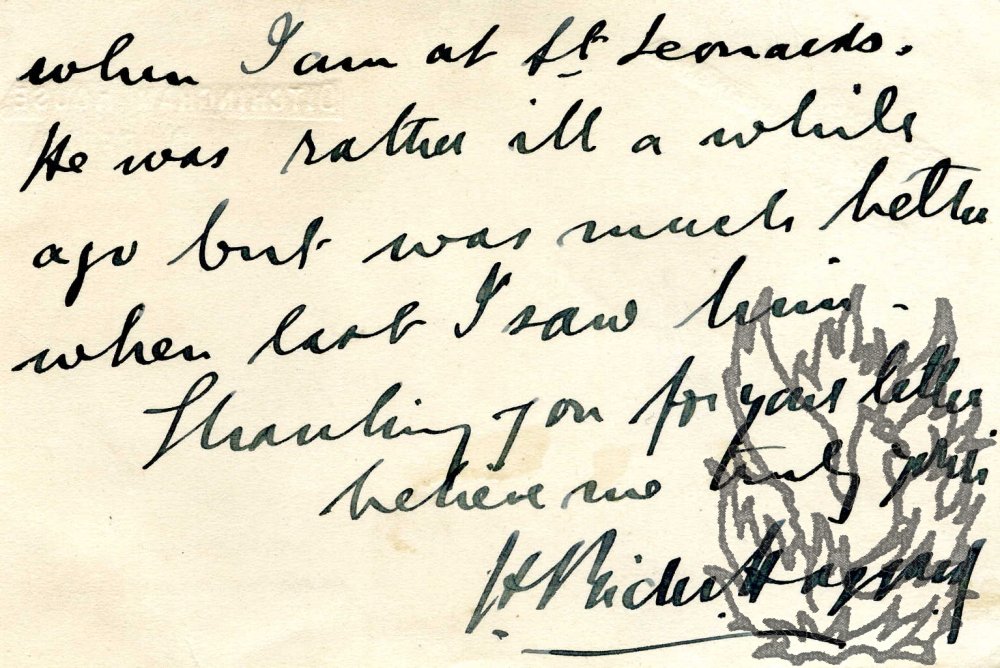 when I am at St. Leonards.
He was rather ill a while
ago but was much better
when last I saw him -
Thanking you for your letter
believe me truly yours
H. Rider Haggard